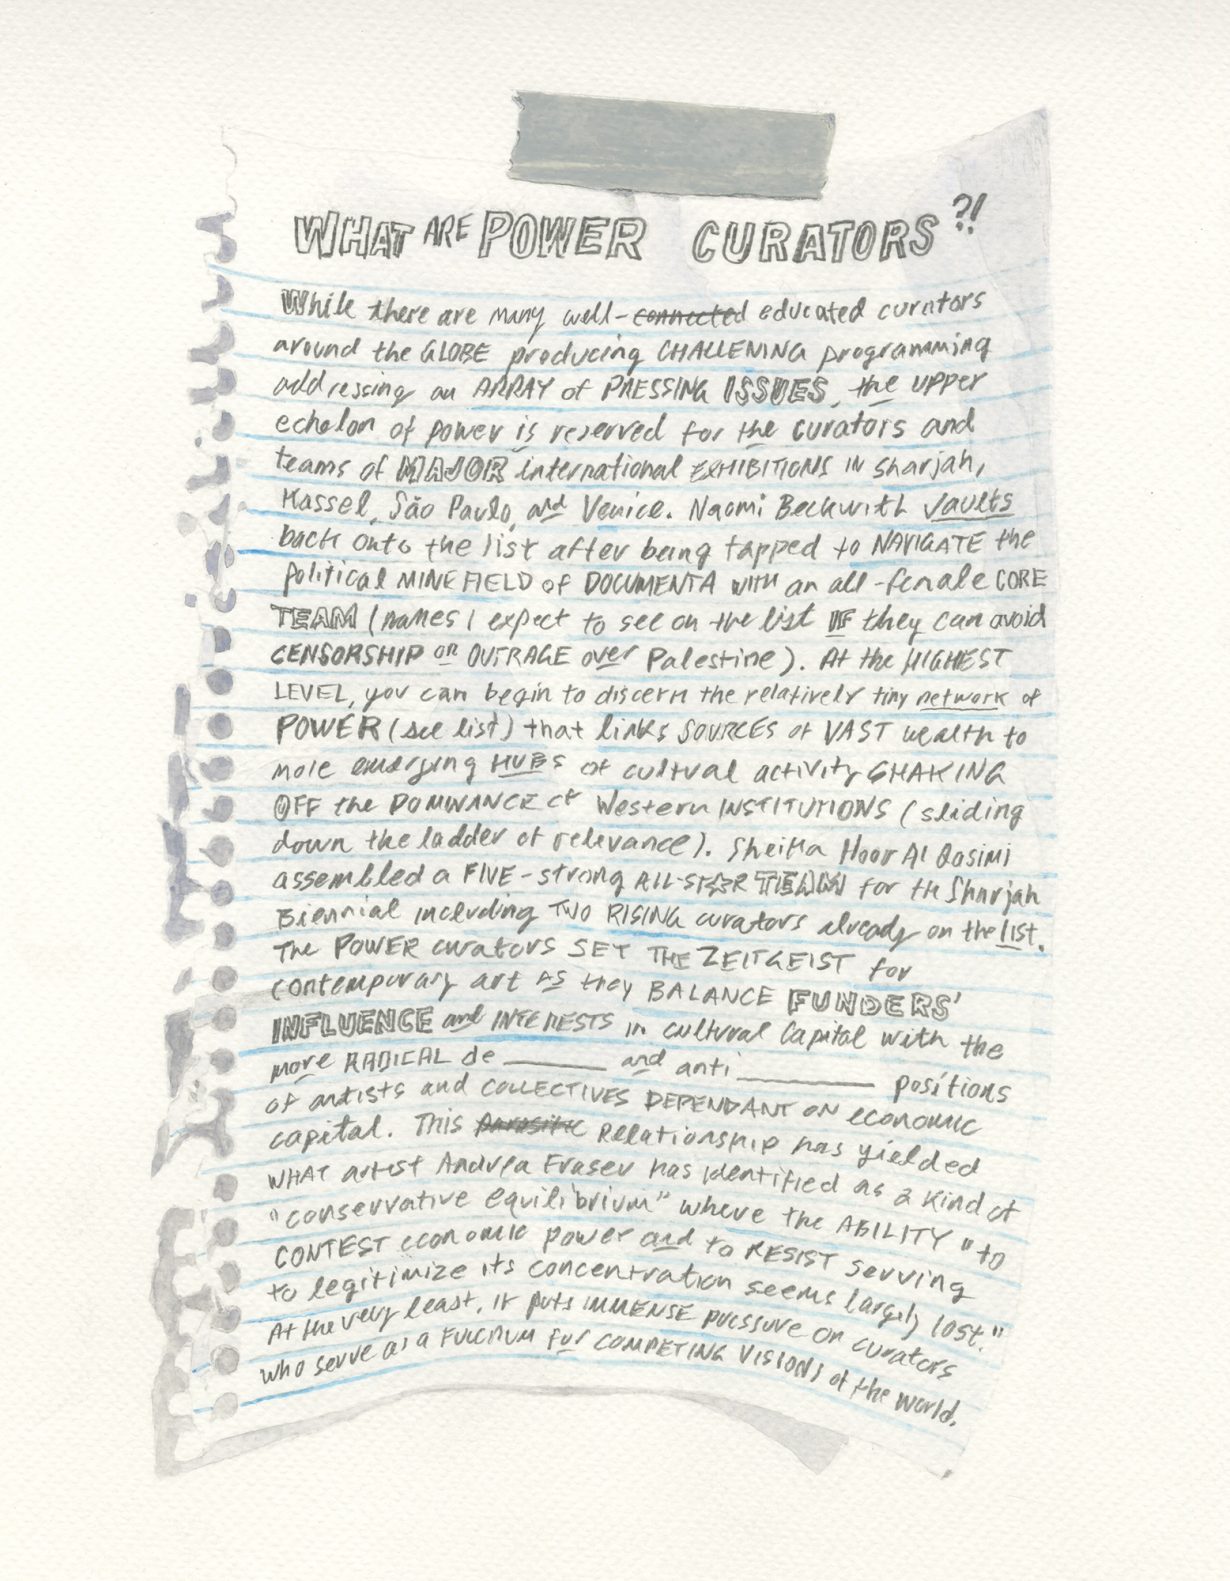 WHAT ARE POWER CURATORS?!
While there are many well-connected educated curators
around the GLOBE producing CHALLENING programming
addressing an ARRAY of PRESSING ISSUES, the upper
echelon of power is reserved for the curators and
teams of MAJOR international EXHIBITIONS IN Sharjah,
Kassel, São Paulo, and Venice. Naomi Beckwith vaults
back onto the list after being tapped to NAVIGATE the
political MINEFIELD of DOCUMENTA with an all-female CORE
TEAM (names I expect to see on the list IF they can avoid
CENSORSHIP or OUTRAGE over Palestine). At the HIGHEST
LEVEL, you can begin to discern the relatively tiny network of
POWER (see list) that links SOURCES of VAST wealth to
more emerging HUBS of cultural activity SHAKING
OFF the DOMINANCE of Western INSTITUTIONS (sliding
down the ladder of relevance). Sheikha Hoor Al Qasimi
assembled a FIVE-strong ALL-STAR TEAM for the Sharjah
Biennial including TWO RISING curators already on the list.
The POWER curators SET THE ZEITGEIST for
contemporary art as they BALANCE FUNDERS'
INFLUENCE and INTERESTS in cultural capital with the
more RADICAL de ______ and anti ________ positions
of artists and COLLECTIVES DEPENDANT ON economic
capital. This parasitic Relationship has yielded
WHAT artist Andrea Fraser has identified as a kind of
"conservative equilibrium" where the ABILITY "to
CONTEST economic power and to RESIST serving
to legitimize its concentration seems largely lost."
At the very least, it puts IMMENSE pressure on curators
who serve as a FULCRUM for COMPETING VISIONS of the world.